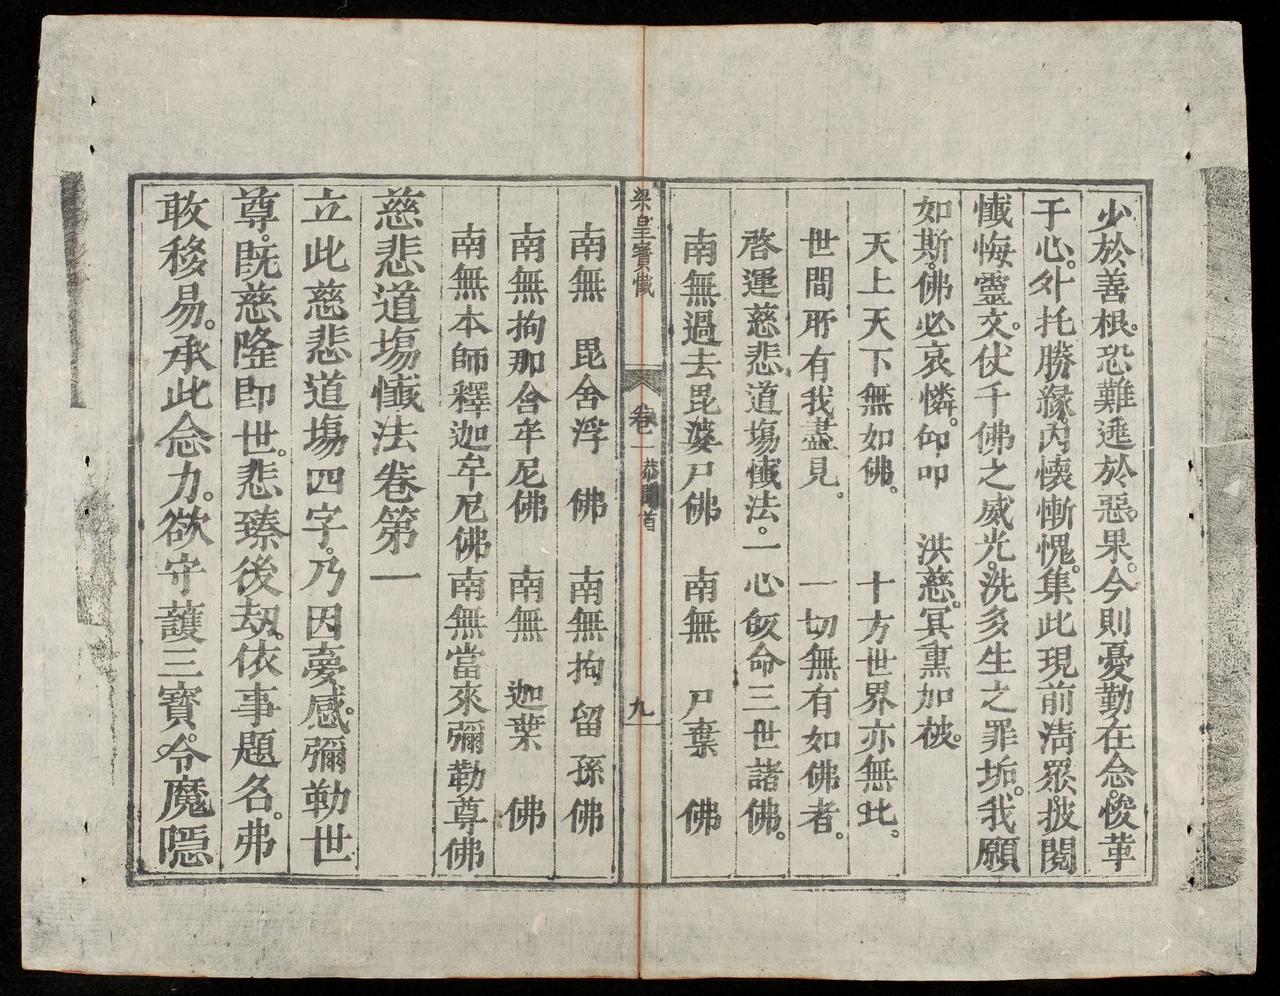 少於善根。恐難逃於惡果。今則憂勤在念。悛革
于心。外托勝緣。內懷慚愧。集此現前清眾。披閱
懺悔靈文。仗千佛之威光。洗多生之罪垢。我願
如斯。佛必哀憐。仰叩　洪慈。冥熏加被。
天上天下無如佛。　十方世界亦無比。
世間所有我盡見。　一切無有如佛者。
啓運慈悲道場懺法。一心皈命三世諸佛。
南無過去毘婆尸佛　南無　尸棄　佛
梁皇寶懺　卷一　恭聞首　九
南無　毘舍浮　佛　南無拘留孫佛
南無拘那含牟尼佛　南無　迦葉　佛
南無本師釋迦牟尼佛南無當來彌勒尊佛
慈悲道場懺法卷第一
立此慈悲道場四字。乃因夢感。彌勒世
尊。既慈隆即世。悲臻後劫。依事題名。弗
敢移易。承此念力。欲守護三寶。令魔隱